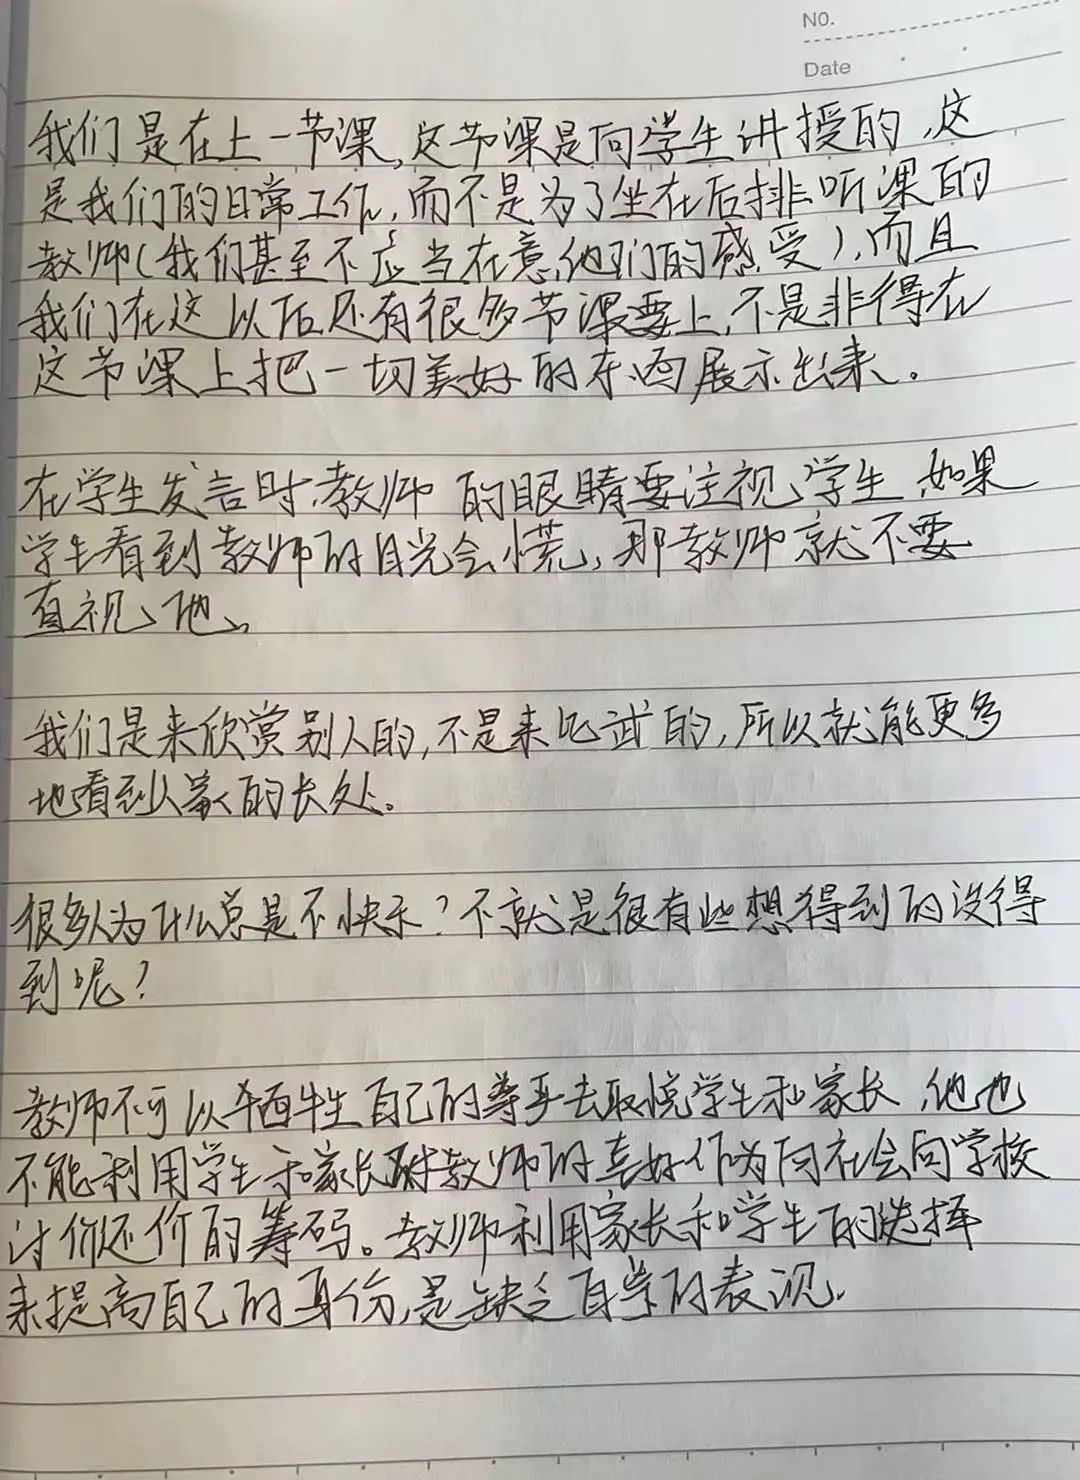 NO.
Date
我们是在上一节课,这节课是向学生讲授的,这
是我们的日常工作,而不是为了坐在后排听课的
教师(我们甚至不应当在意他们的感受),而且
我们在这以后还有很多节课要上,不是非得在
这节课上把一切美好的东西展示出来。
在学生发言时,教师的眼睛要注视学生,如果
学生看到教师的目光会慌,那教师就不要
直视他。
我们是来欣赏别人的,不是来比武的,所以就能更多
地看到人家的长处。
很多人为什么总是不快乐?不就是很有些想得到的没得
到呢?
教师不可以牺牲自己的尊严去取悦学生和家长,他也
不能利用学生和家长对教师的喜好作为向社会向学校
讨价还价的筹码。教师利用家长和学生的选择
来提高自己的身份,是缺乏自学的表现.